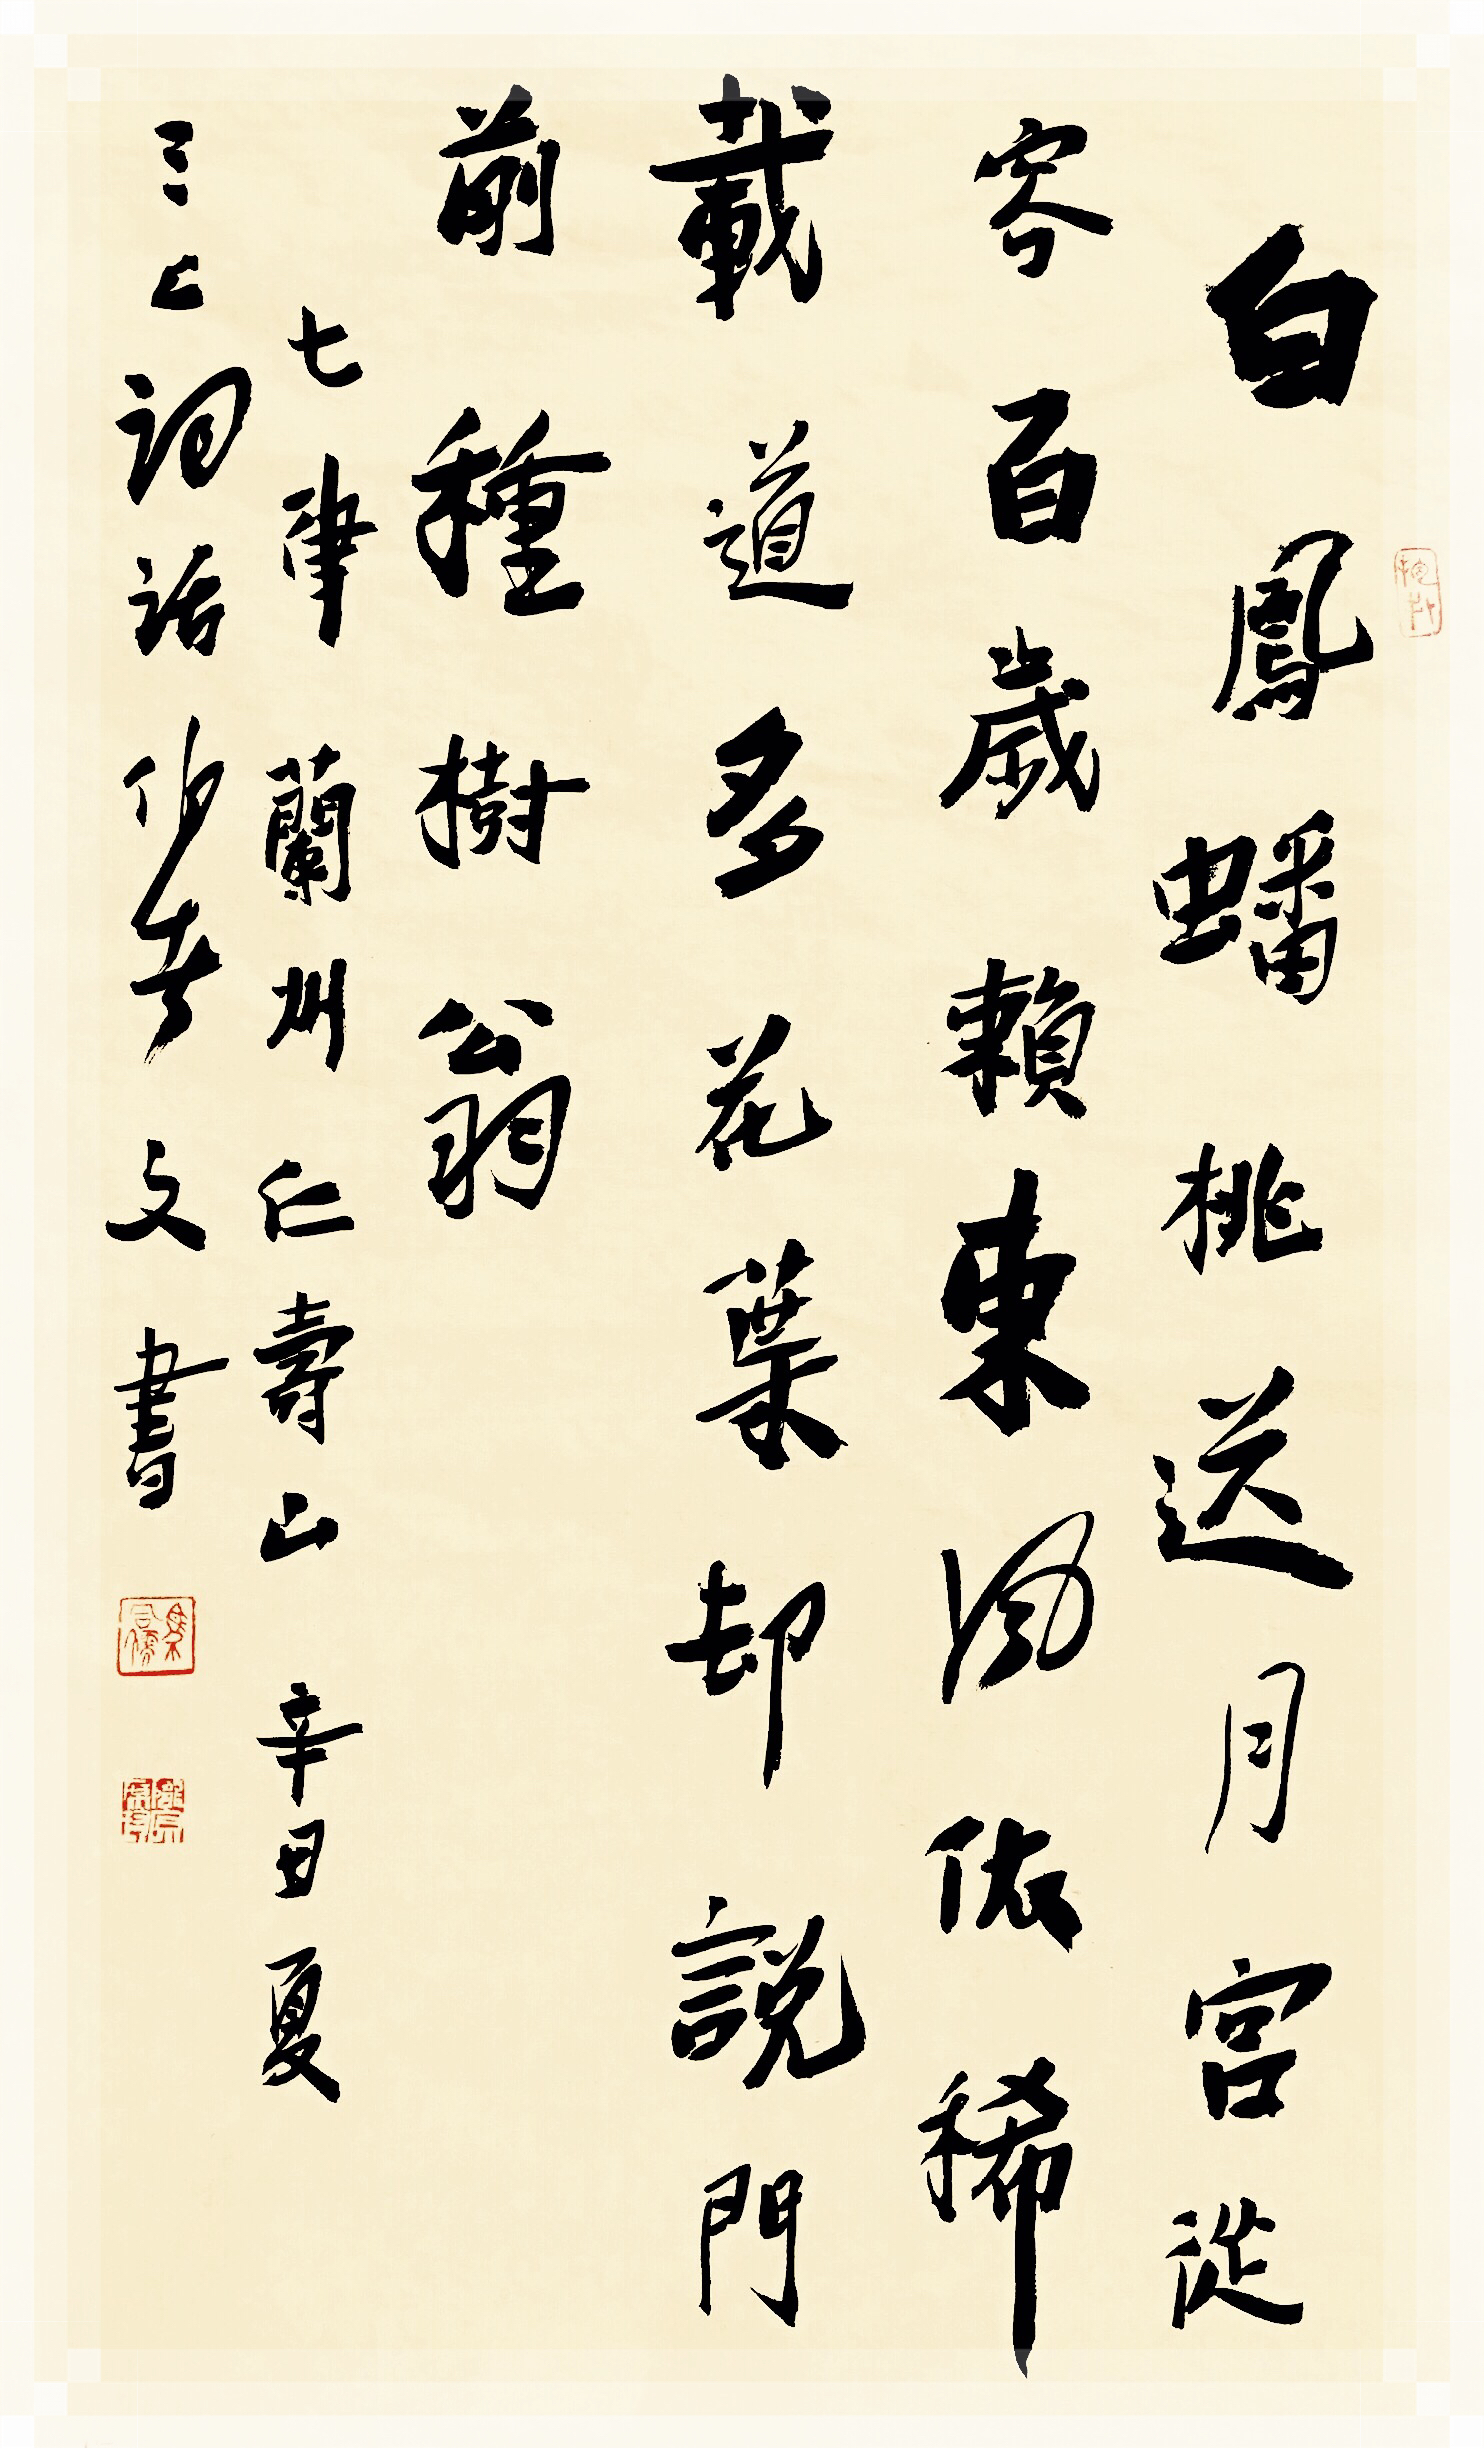 白鳳蟠桃送月宮從
容百歲賴東風依稀
載道多花葉却說門
前種樹翁
七律蘭州仁壽山辛丑夏
三上詞話伯春文書